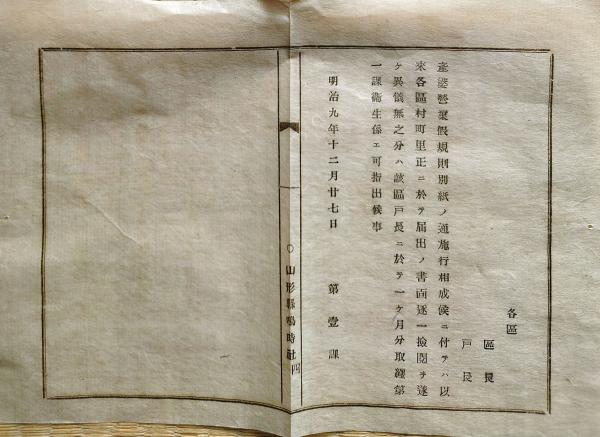 各區
區長
戶長
産婆營業假規則別紙ノ通施行相成候ニ付テハ以
來各區村町里正ニ於テ届出ノ書面逐一撿閲ヲ遂
ケ異儀無之分ハ該區戶長ニ於テ一ケ月分取纏第
一課衞生係エ可指出候事
明治九年十二月廿七日 第壹課
〇山形縣鳴時社 四